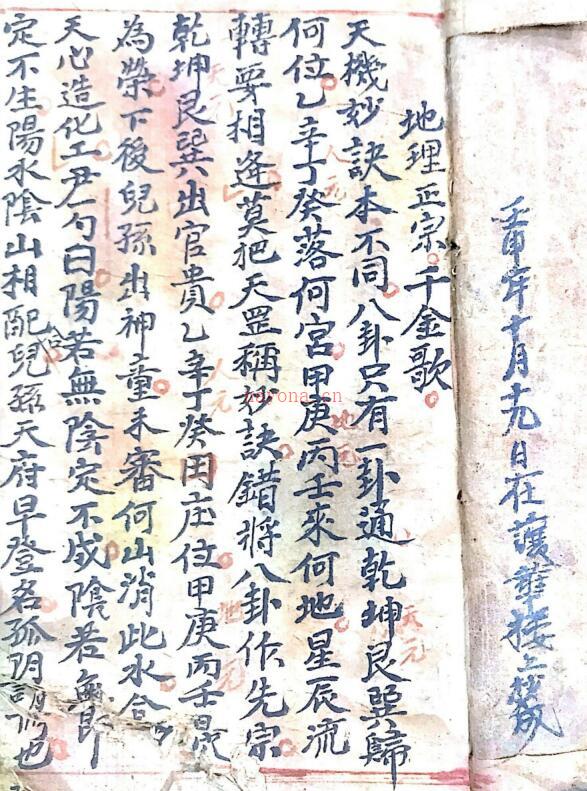 壬申年十月十九日在護華楼上
地理正宗千金歌
天機妙訣本不同八卦只有一卦通乾坤艮巽歸
何位乙辛丁癸落何宮甲庚丙壬來何地星辰流
轉要相逢莫把天罡稱妙訣錯將八卦作先宗
乾坤艮巽出官貴乙辛丁癸田庄位甲庚丙壬
為榮下後兒孫出神童未審何山消此水合
天心造化工
陽若無陰定不成陰若無
定不生陽水陰山相配合兒孫天府早登名孤
天元
人元
地元
天元
人元
地元
hayona.cn